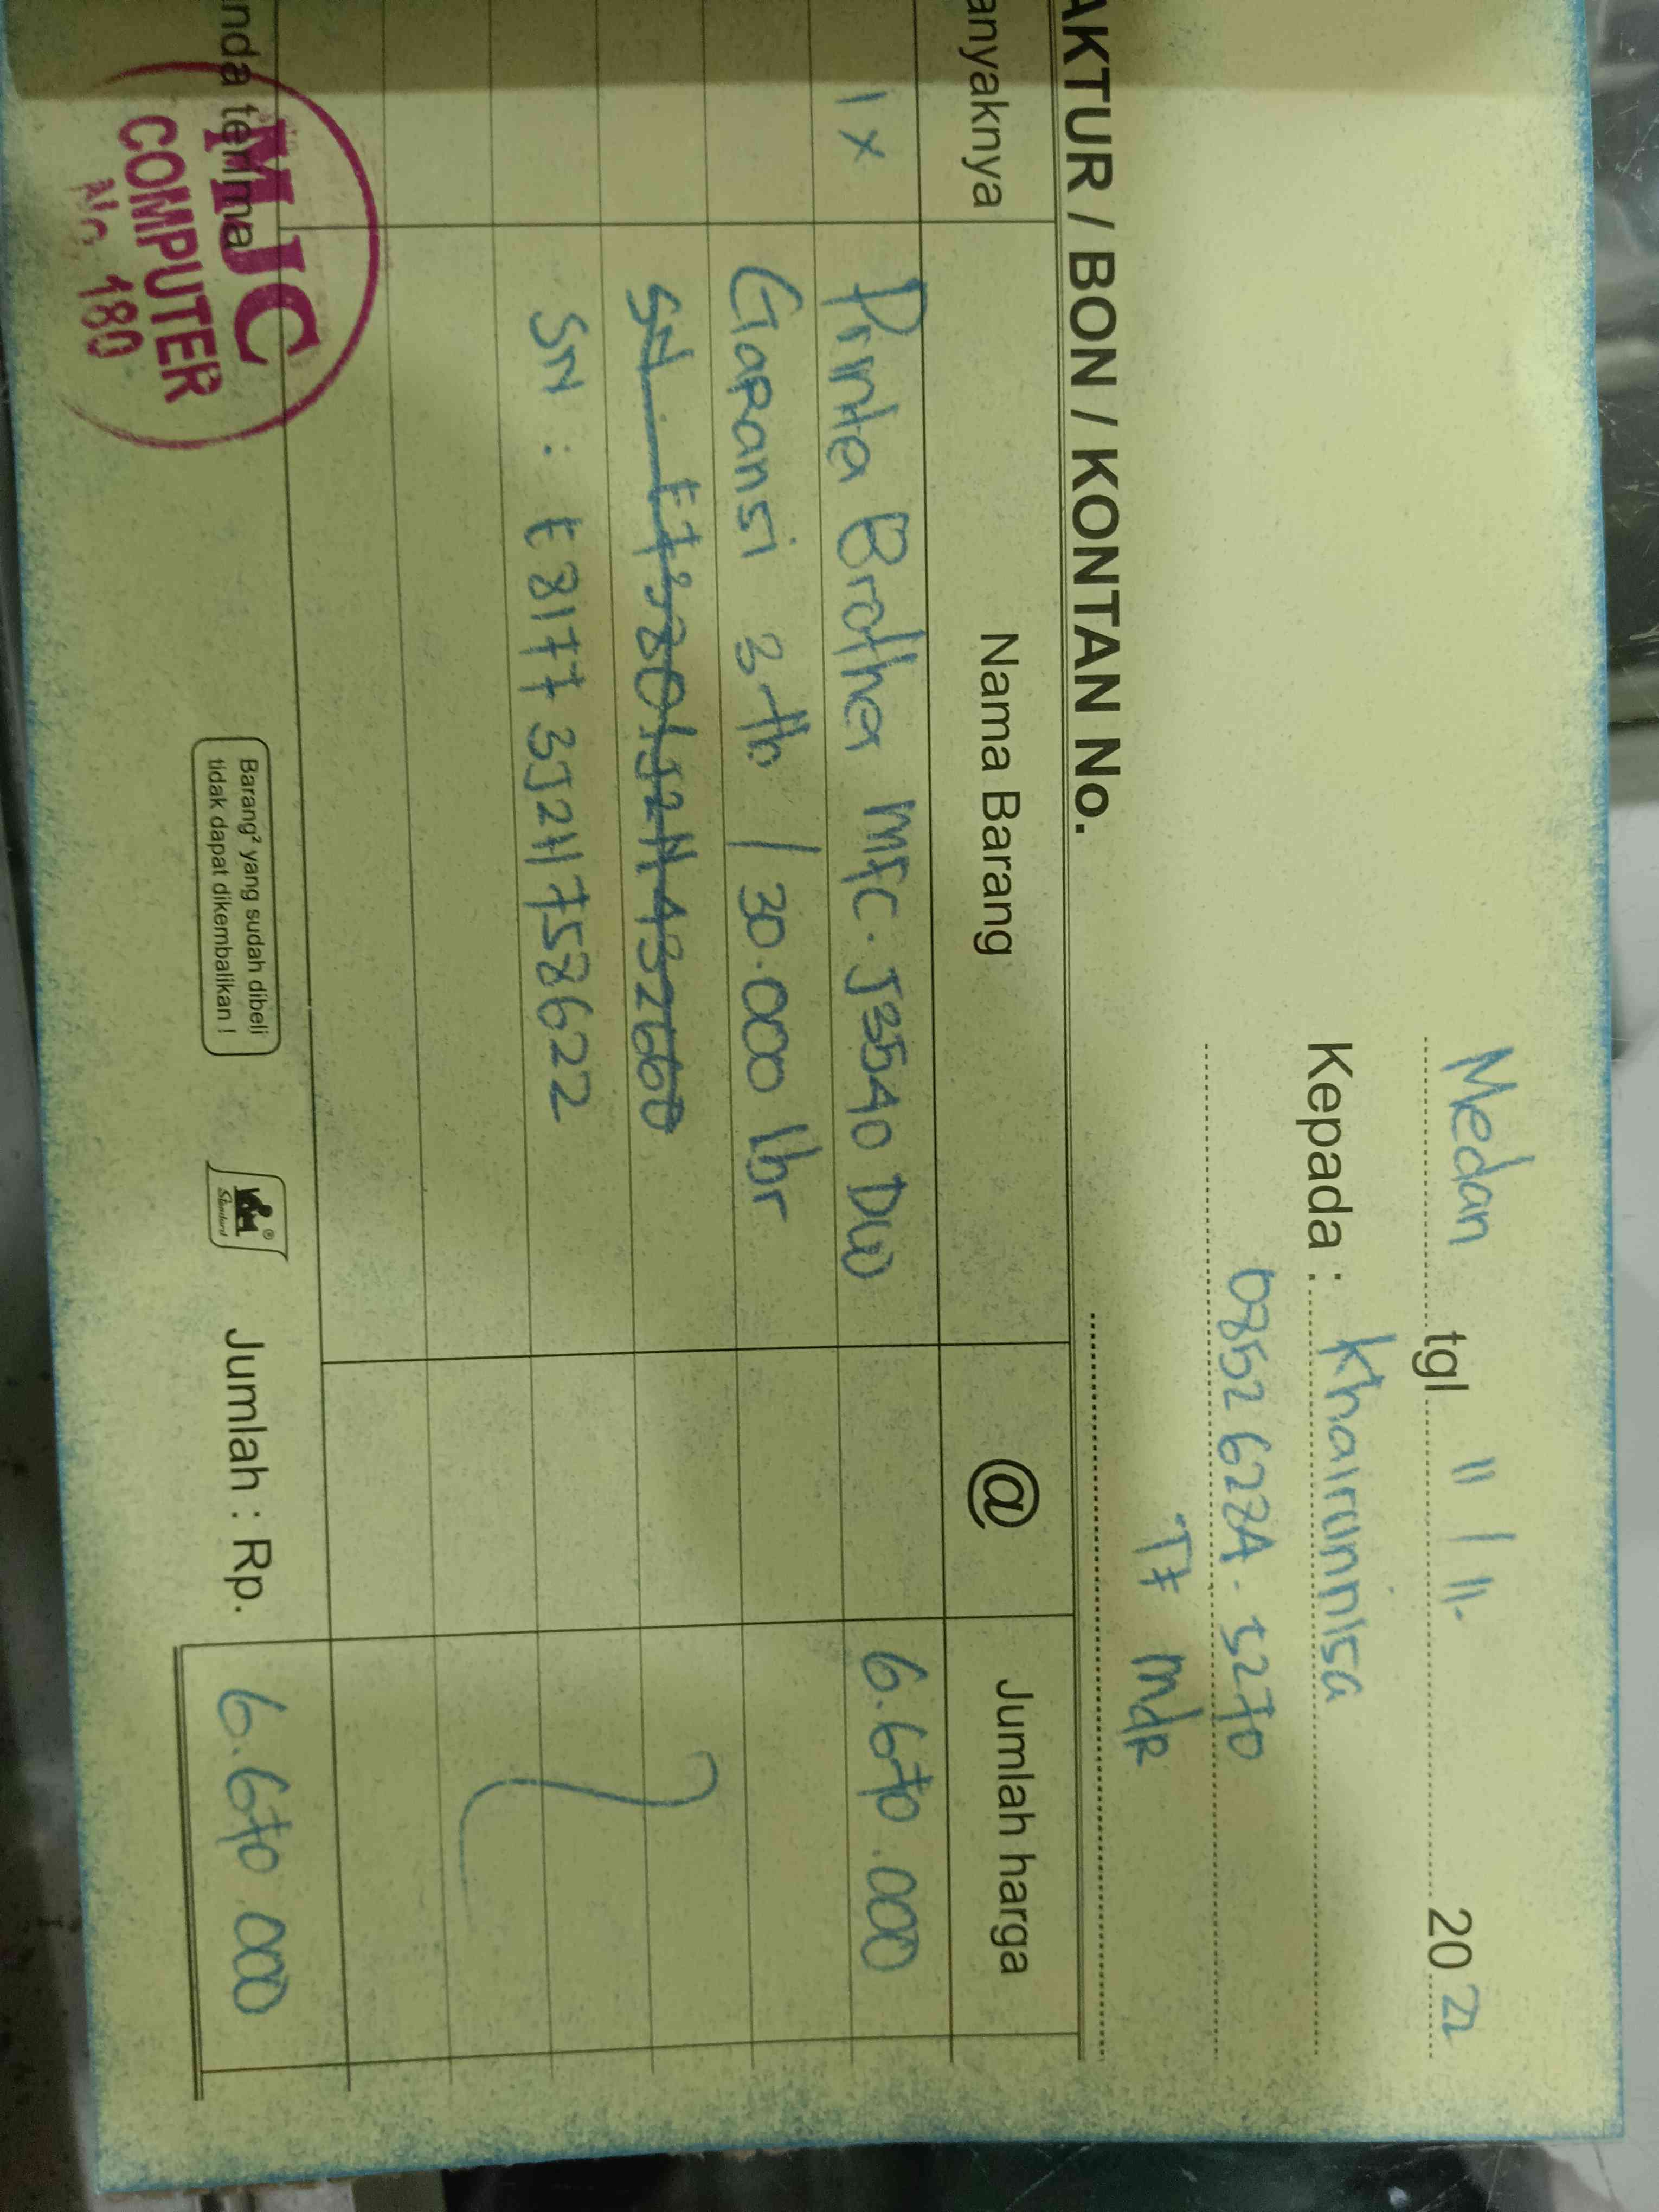 Medan tgl 11 / 11- 2022
Kepada : Khairunnisa
0852 6274 - 5270
TF mdR
AKTUR / BON / KONTAN No.
anyaknya Nama Barang @ Jumlah harga
1 x Printer Brother MFC. J3540 DW 6.670.000
Garansi 3 th / 30.000 lbr
SN : E81773J2H758622
nda terima
MJC
COMPUTER
No. 180
Barang² yang sudah dibeli
tidak dapat dikembalikan !
Standard
Jumlah : Rp. 6.670.000